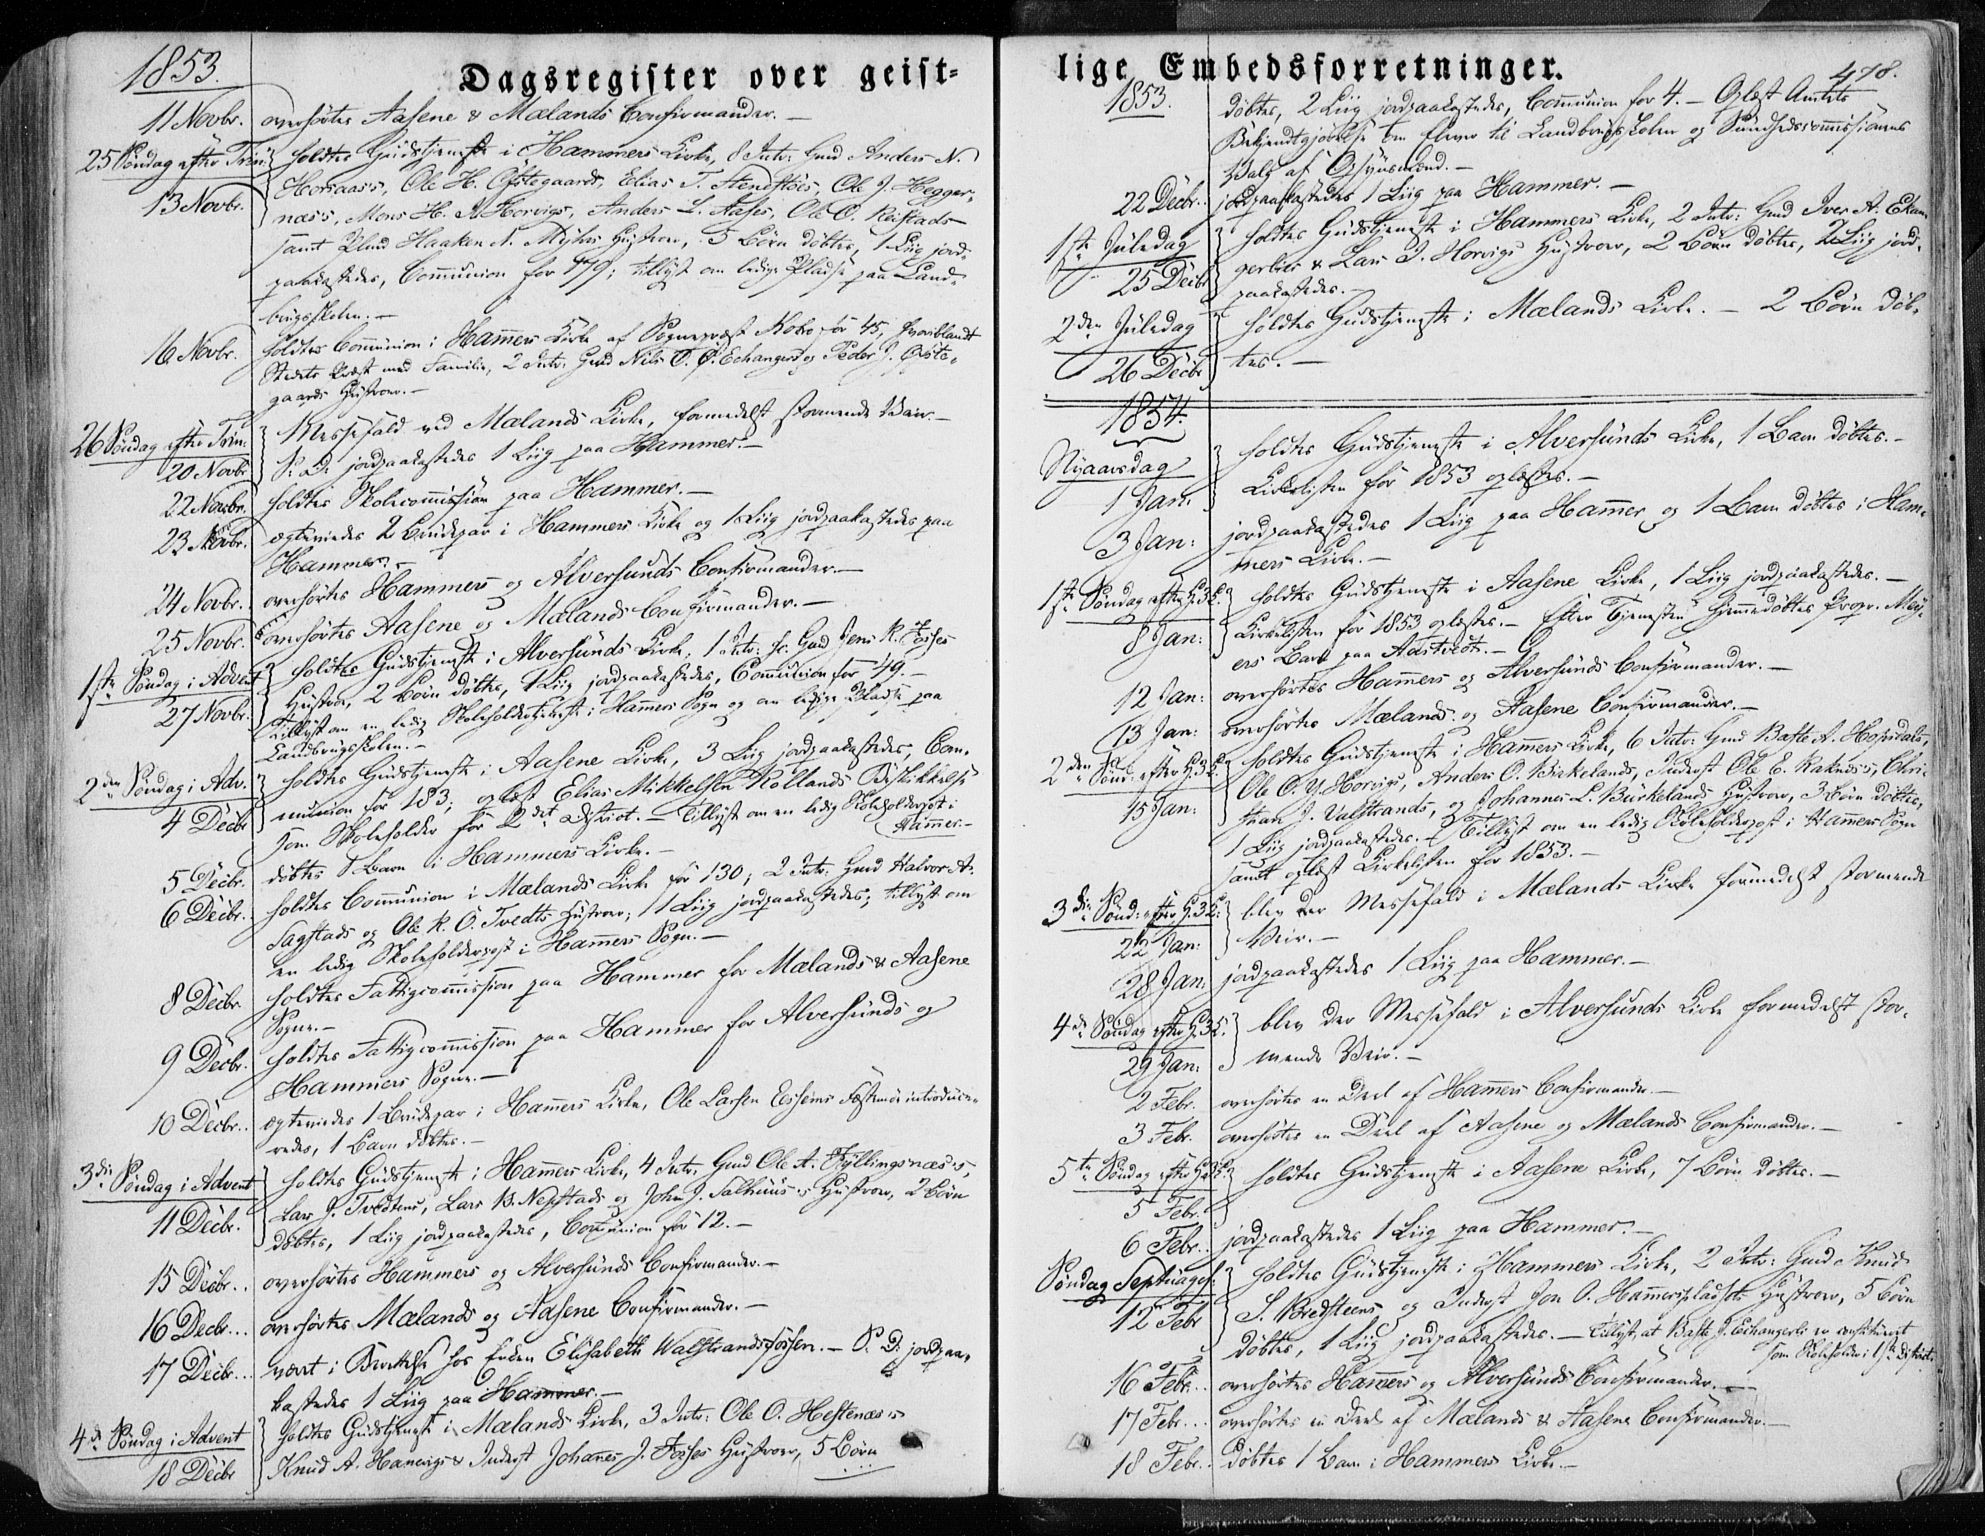 1853.
Dagsregister over geist-
11 Novbr. overhørtes Aasene & Mælands Confirmander. —
25 Søndag efter Trin: holdtes Gudstjeneste i Hammers Kirke, 8 Intr: Gmd Anders N.
13 Novbr. Horsaas's, Ole H. Ofstegaards, Elias T. Stendstøes, Ole J. Hegger-
næs's, Mons H. N. Horvigs, Anders L. Aases, Ole O. Reistads
samt Haaken N. Myhrs Hustroer, 5 Børn døbtes, 1 Liig jord-
paakastedes, Communion for 179; tillyst om ledige Pladse paa Land-
brugsskolen. —
16 Novbr. holdtes Communion i Hammers Kirke af Sognepræst Kobo for 45, hvoriblandt
Stedets Præst med Familie, 2 Intr: Gmd Nils O. Echangers og Peder J. Ofste-
gaards Hustroer. —
26 Søndag efter Trin: Messefald ved Mælands Kirke, formedelst stormende Veir. —
20 Novbr S. D. jordpaakastedes 1 Liig paa Hammer. —
22 Novbr. holdtes Skolecommission paa Hammer. —
23 Novbr. ægteviedes 2 Brudepar i Hammers Kirke og 1 Liig jordpaakastedes paa
Hammer. —
24 Novbr. overhørtes Hammers og Alversunds Confirmander. —
25 Novbr. overhørtes Aasene og Mælands Confirmander. —
1ste Søndag i Advent holdtes Gudstjeneste i Alversunds Kirke, 1 Intr: Gmd Jens R. Fosses
27 Novbr. Hustroe, 2 Børn døbtes, 1 Liig jordpaakastedes, Communion for 149. —
Tillyst om en ledig Skoleholdertjeneste i Hammers Sogn og om ledige Pladse paa
Landbrugsskolen. —
2den Søndag i Adv. holdtes Gudstjeneste i Aasene Kirke, 3 Liig jordpaakastedes, Com-
4 Decbr munion for 183; oplæst Elias Mikkelsen Kollands Beskikkelse
som Skoleholder for 2det District. — Tillyst om en ledig Skoleholderpost i
Hammer. —
5 Decbr. døbtes 1 Barn i Hammers Kirke. —
6 Decbr. holdtes Communion i Mælands Kirke for 130; 2 Intr: Gmd Halvor A.
Sagstads og Ole K. O. Tvedts Hustroer; 1 Liig jordpaakastedes; tillyst om
en ledig Skoleholderpost i Hammers Sogn. —
8 Decbr. holdtes Fattigcommission paa Hammer for Mælands & Aasene
Sogne. —
9 Decbr. holdtes Fattigcommission paa Hammer for Alversunds og
Hammers Sogne. —
10 Decbr.. ægteviedes 1 Brudepar i Hammers Kirke, Ole Larsen Essems Fæstemø introduce-
redes, 1 Barn døbtes. —
3die Søndag i Advent holdtes Gudstjeneste i Hammers Kirke, 4 Intr: Gmd Ole A. Fyllingsnæs's,
11 Decbr. Lars J. Tvedtens, Lars B. Nepstads og John J. Salhuus's Hustroer, 2 Børn
døbtes, 1 Liig jordpaakastedes, Communion for 12. —
15 Decbr.. overhørtes Hammers og Alversunds Confirmander. —
16 Decbr... overhørtes Mælands og Aasene Confirmander. —
17 Decbr... været i hos Enken Elisabeth Walstrandsfossen. — S. D. jordpaa-
kastedes 1 Liig paa Hammer. —
4de Søndag i Advent holdtes Gudstjeneste i Mælands Kirke, 3 Intr: Ole O. Hestenæs's
18 Decbr Knud A. Hanevigs & Inderst Johanes J. Fosses Hustroer, 5 Børn
lige Embedsforretninger.
478.
1853. døbtes, 2 Liig jordpaakastedes, Communion for 4. — Oplæst Amtets
Bekjendtgjørelse om Elever til Landbrugsskolen og Sundhedscommissionens
Valg af Opsynsmænd. —
22 Decbr.. jordpaakastedes 1 Liig paa Hammer. —
1ste Juledag holdtes Gudstjeneste i Hammers Kirke, 2 Intr: Gmd Iver A. Ekan-
25 Decbr gerlies & Lars J. Horvigs Hustroer, 2 Børn døbtes, 2 Liig jord-
paakastedes. —
2den Juledag holdtes Gudstjeneste i Mælands Kirke. — 2 Børn døb-
26 Decbr tes. —
1854.
Nyaarsdag holdtes Gudstjeneste i Alversunds Kirke, 1 Barn døbtes. —
1 Jan: Kirkelisten for 1853 oplæstes. —
3 Jan: jordpaakastedes 1 Liig paa Hammer og 1 Barn døbtes i Ham-
mers Kirke. —
1ste Søndag efter H.3K. holdtes Gudstjeneste i Aasene Kirke, 1 Liig jordpaakastedes. —
8 Jan: Kirkelisten for 1853 oplæstes. — Efter Tjenesten hjemmedøbtes Propr. Mey-
ers Barn paa Aastvedt. —
12 Jan: overhørtes Hammers og Alversunds Confirmander. —
13 Jan: overhørtes Mælands og Aasene Confirmander. —
2den Sønd: efter H.3K. holdtes Gudstjeneste i Hammers Kirke, 6 Intr: Gmd Baste A. Hopsdals,
15 Jan: Ole O. Y. Horvigs, Anders O. Birkelands, Inderst Ole E. Raknæs's, Chri-
stian J. Valstrands, og Johannes L. Burkelands Hustroer, 3 Børn døbtes,
1 Liig jordpaakastedes. Tillyst om en ledig Skoleholderpost i Hammers Sogn
samt oplæst Kirkelisten for 1853. —
3die Sønd: efter H.3K. blev der Messefald i Mælands Kirke formedelst stormende
22 Jan: Veir. —
28 Jan: jordpaakastedes 1 Liig paa Hammer. —
4de Søndag efter H.3K. blev der Messefald i Alversunds Kirke formedelst stor-
29 Jan: mende Veir. —
2 Febr. overhørtes en Deel af Hammers Confirmander —
3 Febr. overhørtes en Deel af Aasene og Mælands Confirmander. —
5te Søndag efter H.3K. holdtes Gudstjeneste i Aasene Kirke, 7 Børn døbtes. —
5 Febr.
6 Febr.. jordpaakastedes 1 Liig paa Hammer. —
Søndag Septuages: holdtes Gudstjeneste i Hammers Kirke, 2 Intr: Gmd Knud
12 Febr S. Bredsteens og Inderst Jon O. Hammerspladsets Hustroer, 5 Børn
døbtes, 1 Liig jordpaakastedes. — Tillyst, at Baste J. Echangerli er constitueret
som Skoleholder i 1ste District.
16 Febr.. overhørtes Hammers og Alversunds Confirmander. —
17 Febr... overhørtes en Deel af Mælands & Aasene Confirmander. —
18 Febr.. døbtes 1 Barn i Hammers Kirke. —